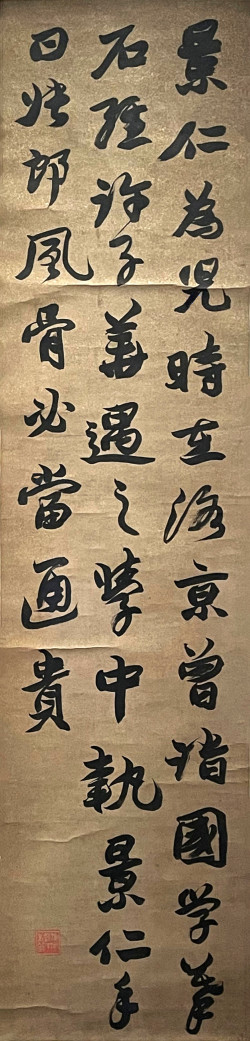 景仁為兒時在洛京曾詣國学摹
石經許子華遇之學中執景仁手
曰張郎風骨必當通貴